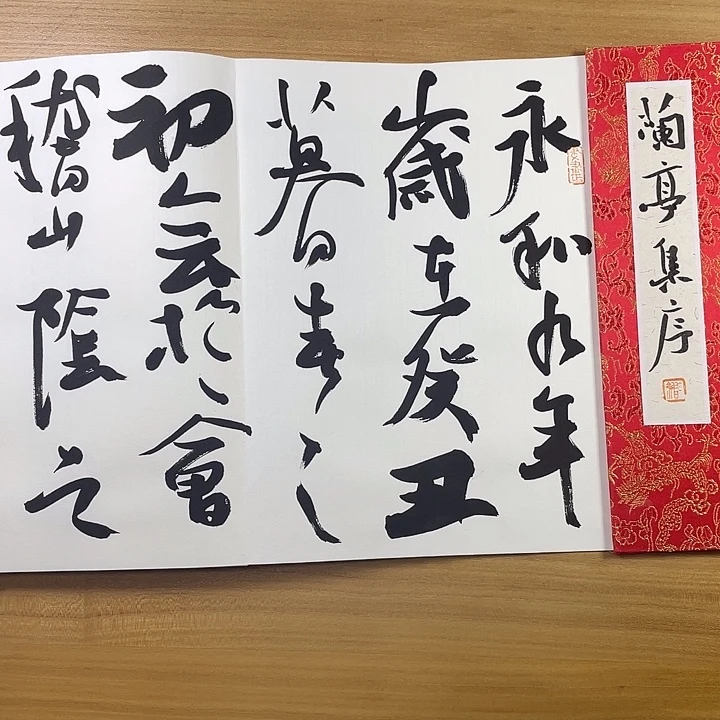 蘭亭集序
永和九年
歲在癸丑
暮春之
初会於會
稽山陰之